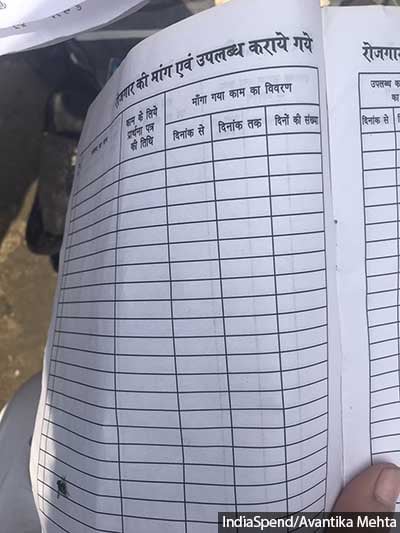 रोजगार की मांग एवं उपलब्ध कराये गये
काम के लिये
प्रार्थना पत्र
की तिथि
माँगा गया काम का विवरण
दिनांक से
दिनांक तक
दिनों की संख्या
रोजगार
उपलब्ध क
का
दिनांक से
IndiaSpend/Avantika Mehta